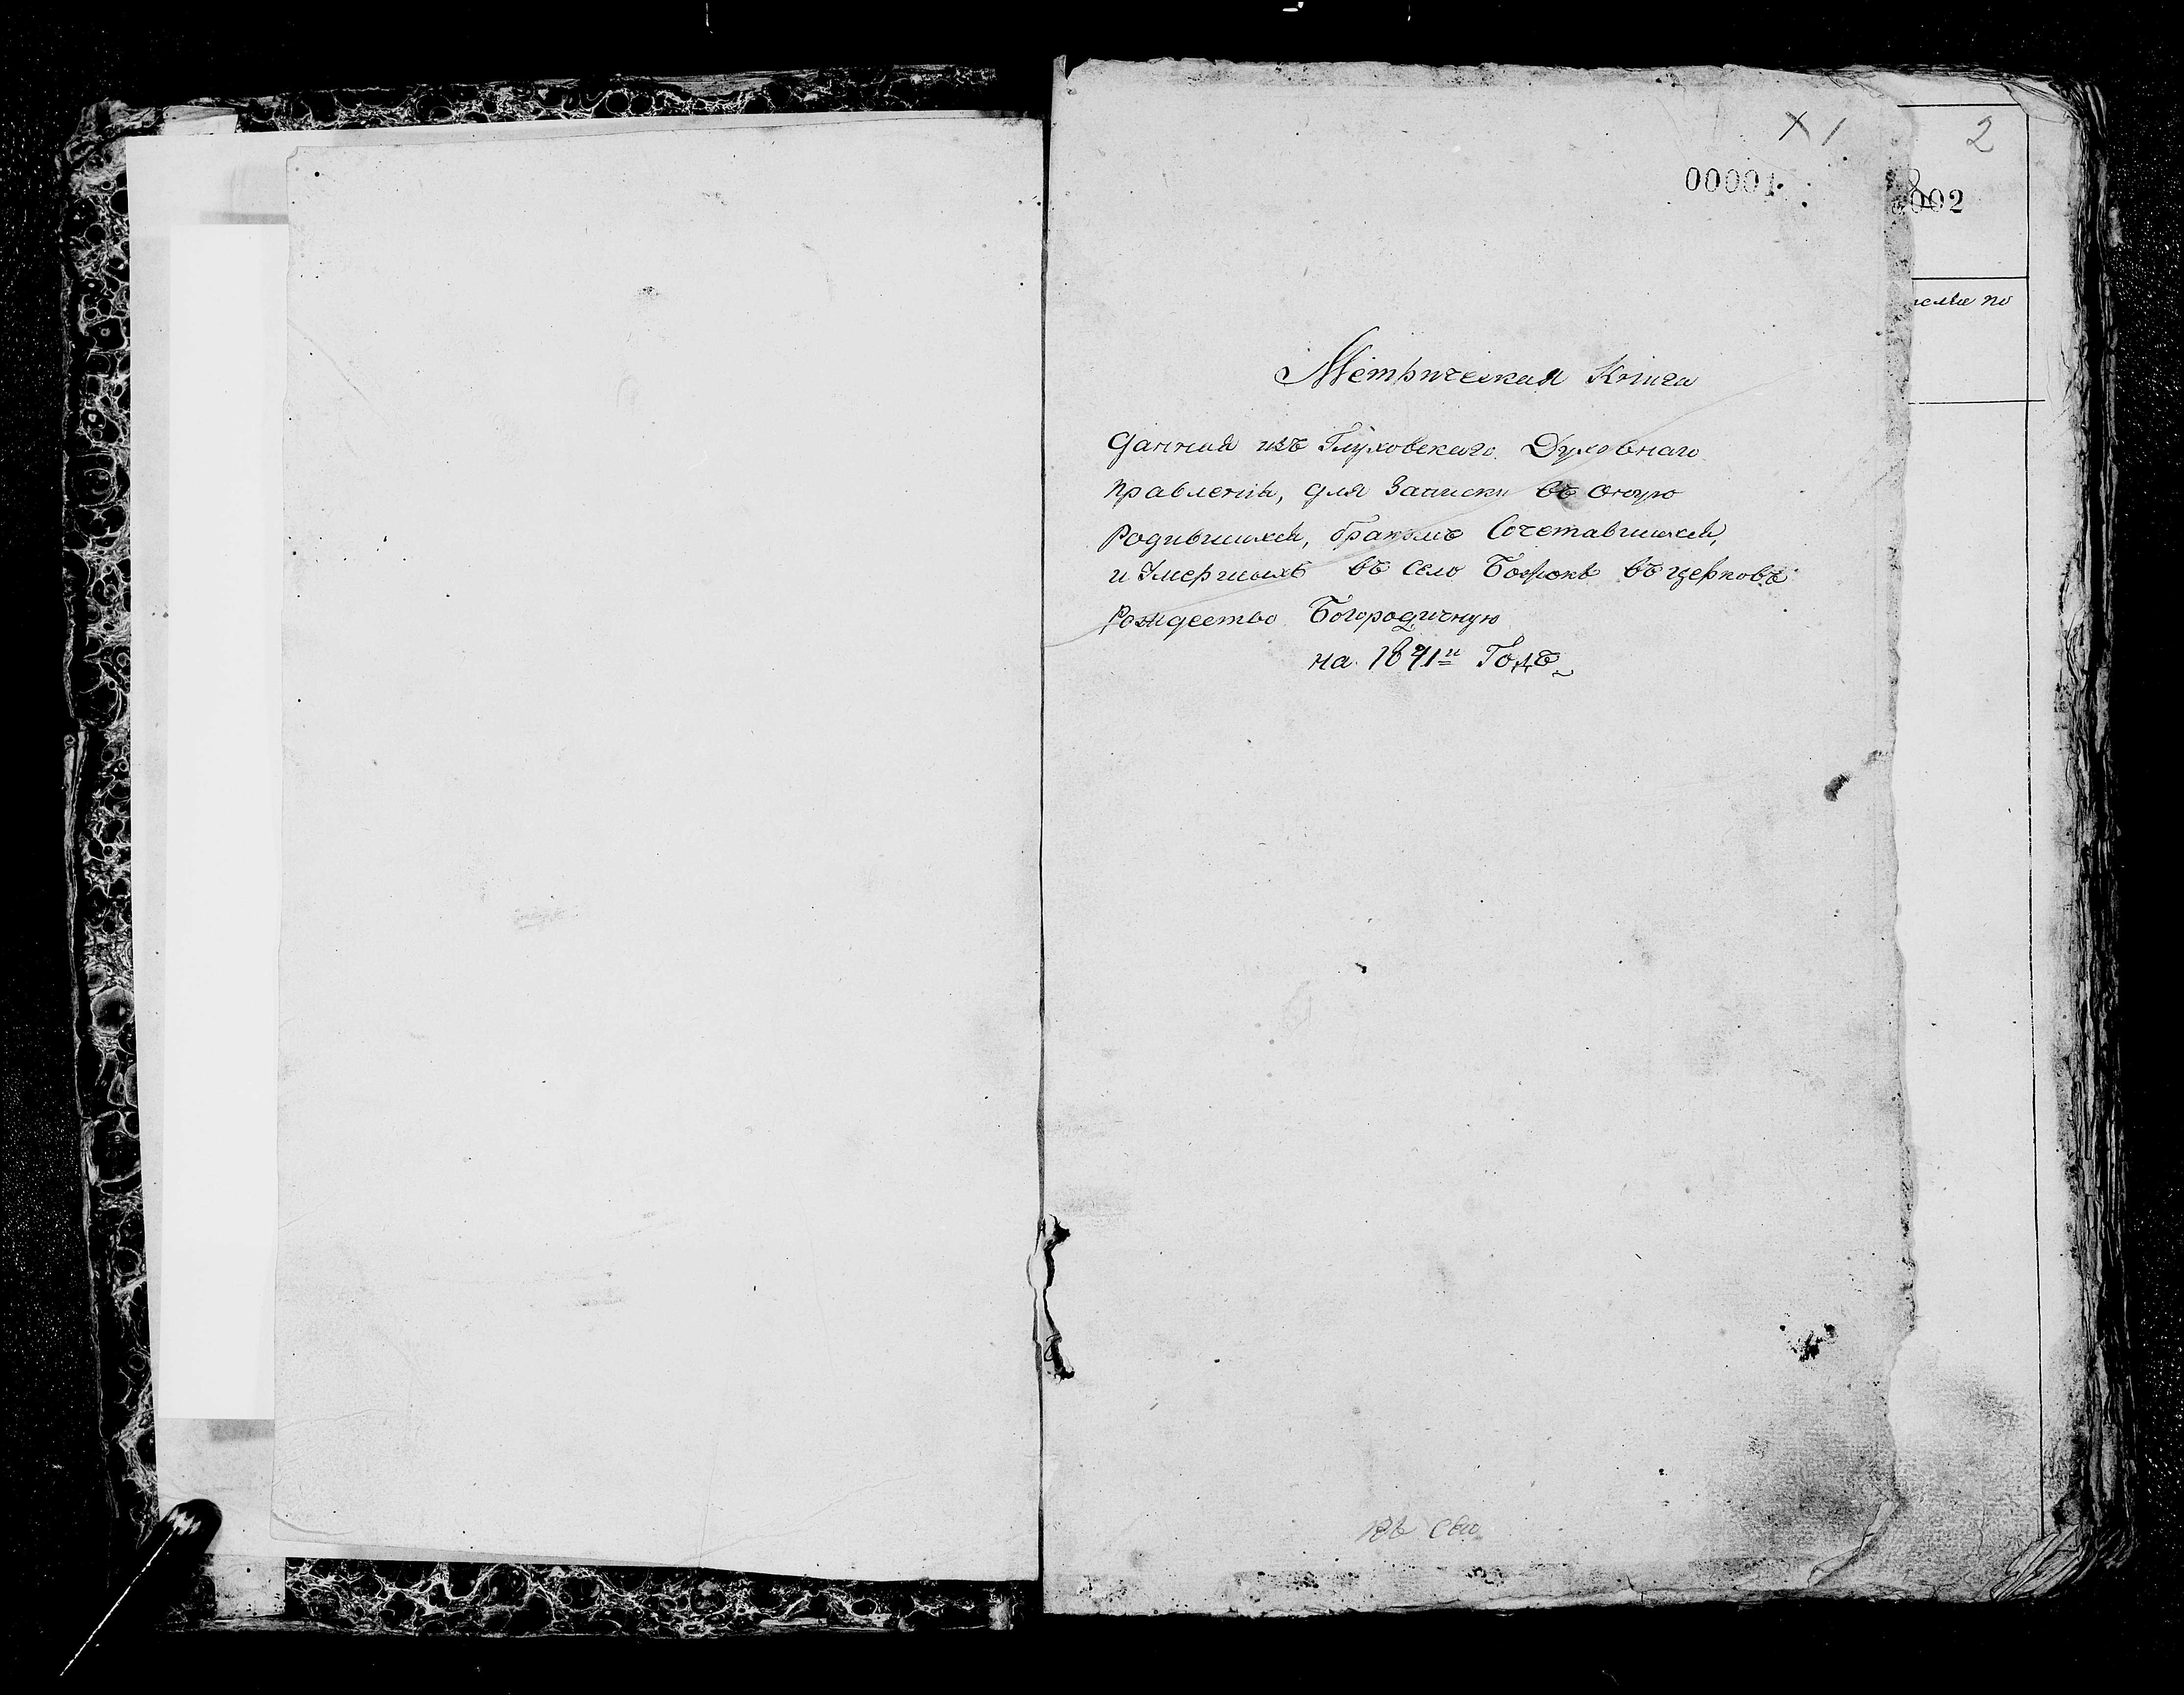 X 1
2
00001
002
Метрическая Книга
данная изъ Глуховскаго Духовнаго
правленія, для Записки въ оную
Родившихся, бракомъ Сочетавшихся,
и Умершихъ въ село въ церковь
Рождество Богородичную
на 1841й Годъ
по